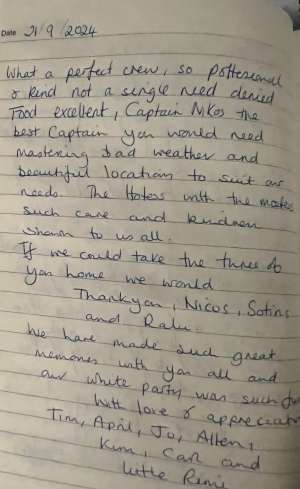 Date 21/9/2024
What a perfect crew, so proffesional
& kind not a single need denied
Food excellent, Captain Nikos the
best Captain you would need
mastering bad weather and
beautiful locations to suit our
needs. The Hostess with the mostes
such care and kindness
shown to us all.
If we could take the three of
you home we would
Thankyou, Nicos, Sotiris
and Ralu
We have made such great
memories with you all and
our white party was such fun
With love & appreciation
Tim, April, Jo, Allen,
Kim, Carl and
little Remi